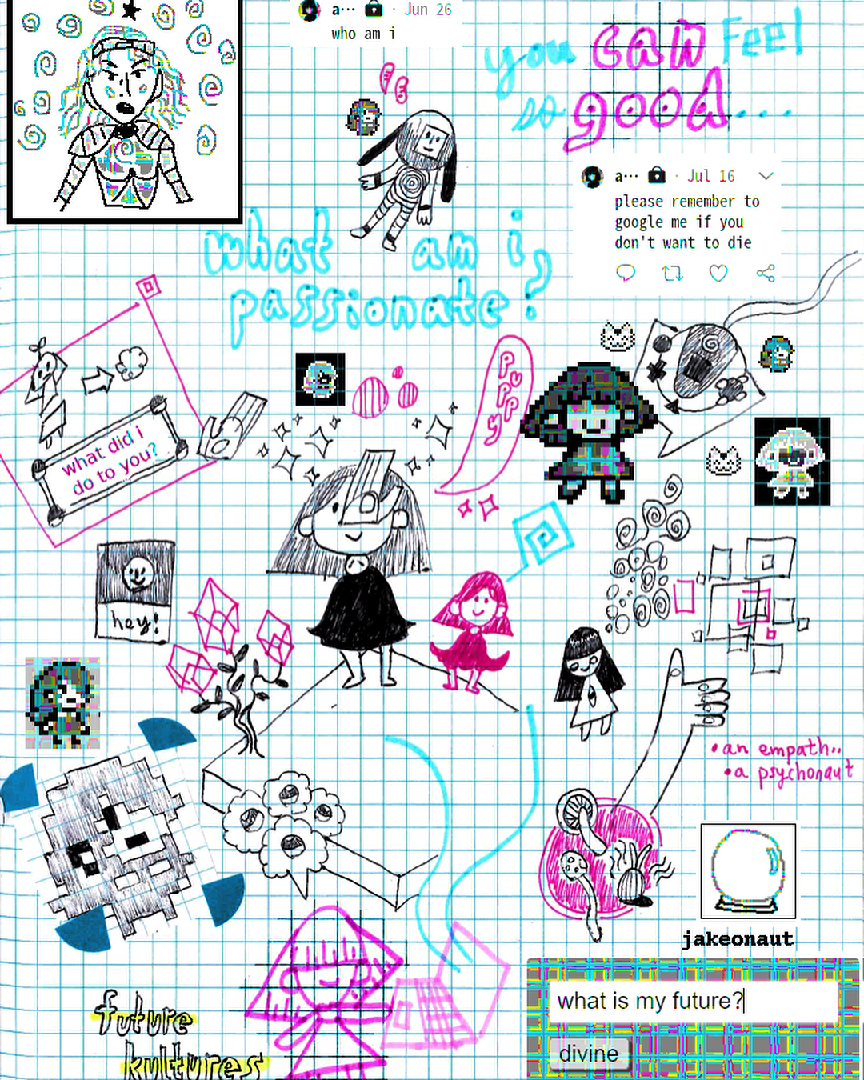 a··· · Jun 26
who am i
you can feel
so good...
a··· · Jul 16
please remember to
google me if you
don't want to die
what am i,
passionate?
puppy
what did i
do to you?
hey!
• an empath..
• a psychonaut
jakeonaut
what is my future?
divine
future
kultures